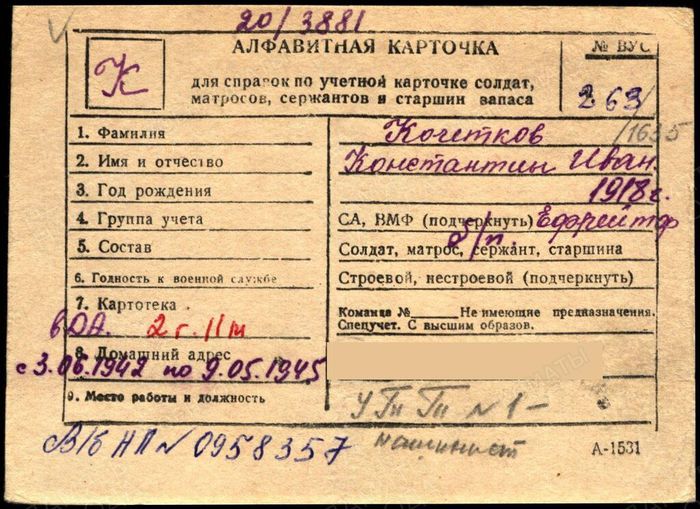 20/3881
АЛФАВИТНАЯ КАРТОЧКА
№ ВУС
К
для справок по учетной карточке солдат,
матросов, сержантов и старшин запаса
263
/1635
1. Фамилия
Кочетков
2. Имя и отчество
Константин Иван.
3. Год рождения
1918 г.
4. Группа учета
СА, ВМФ (подчеркнуть) Ефрейтор
5. Состав
б/п.
Солдат, матрос, сержант, старшина
6. Годность к военной службе
Строевой, нестроевой (подчеркнуть)
7. Картотека
Команда №______ Не имеющие предназначения.
Спецучет. С высшим образов.
вОА. 2 г. 11 м
8. Домашний адрес
с 3.06.1942 по 9.05.1945
9. Место работы и должность
№ 1 -
машинист
В/б НП № 0958357
А-1531